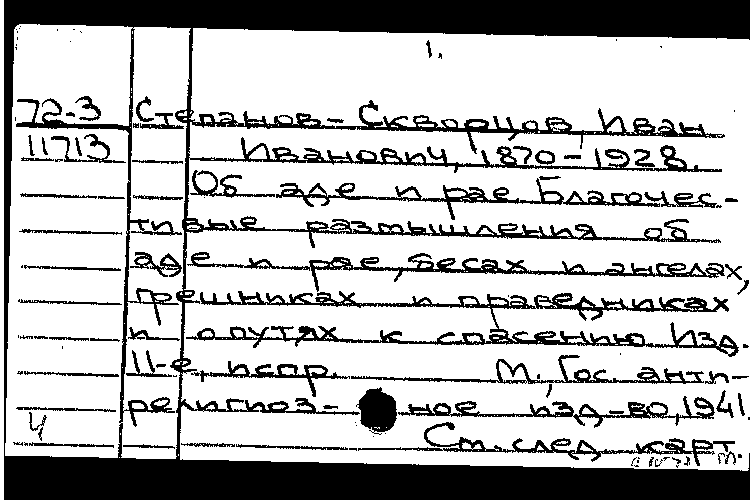 1.
72-3 Степанов-Скворцов, Иван
11713 Иванович, 1870-1928.
Об аде и рае. Благочес-
тивые размышления об
аде и рае, бесах и ангелах,
грешниках и праведниках
и о путях к спасению. Изд.
11-е, испр. М., Гос. анти-
религиоз- ное изд-во, 1941.
Ч
См. след. карт.